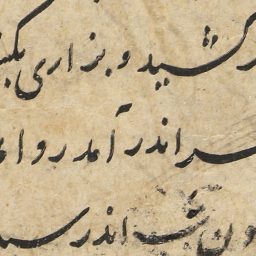 کشید و بزاری بگ
سر اندر آمد روا
ون شب اندر سی